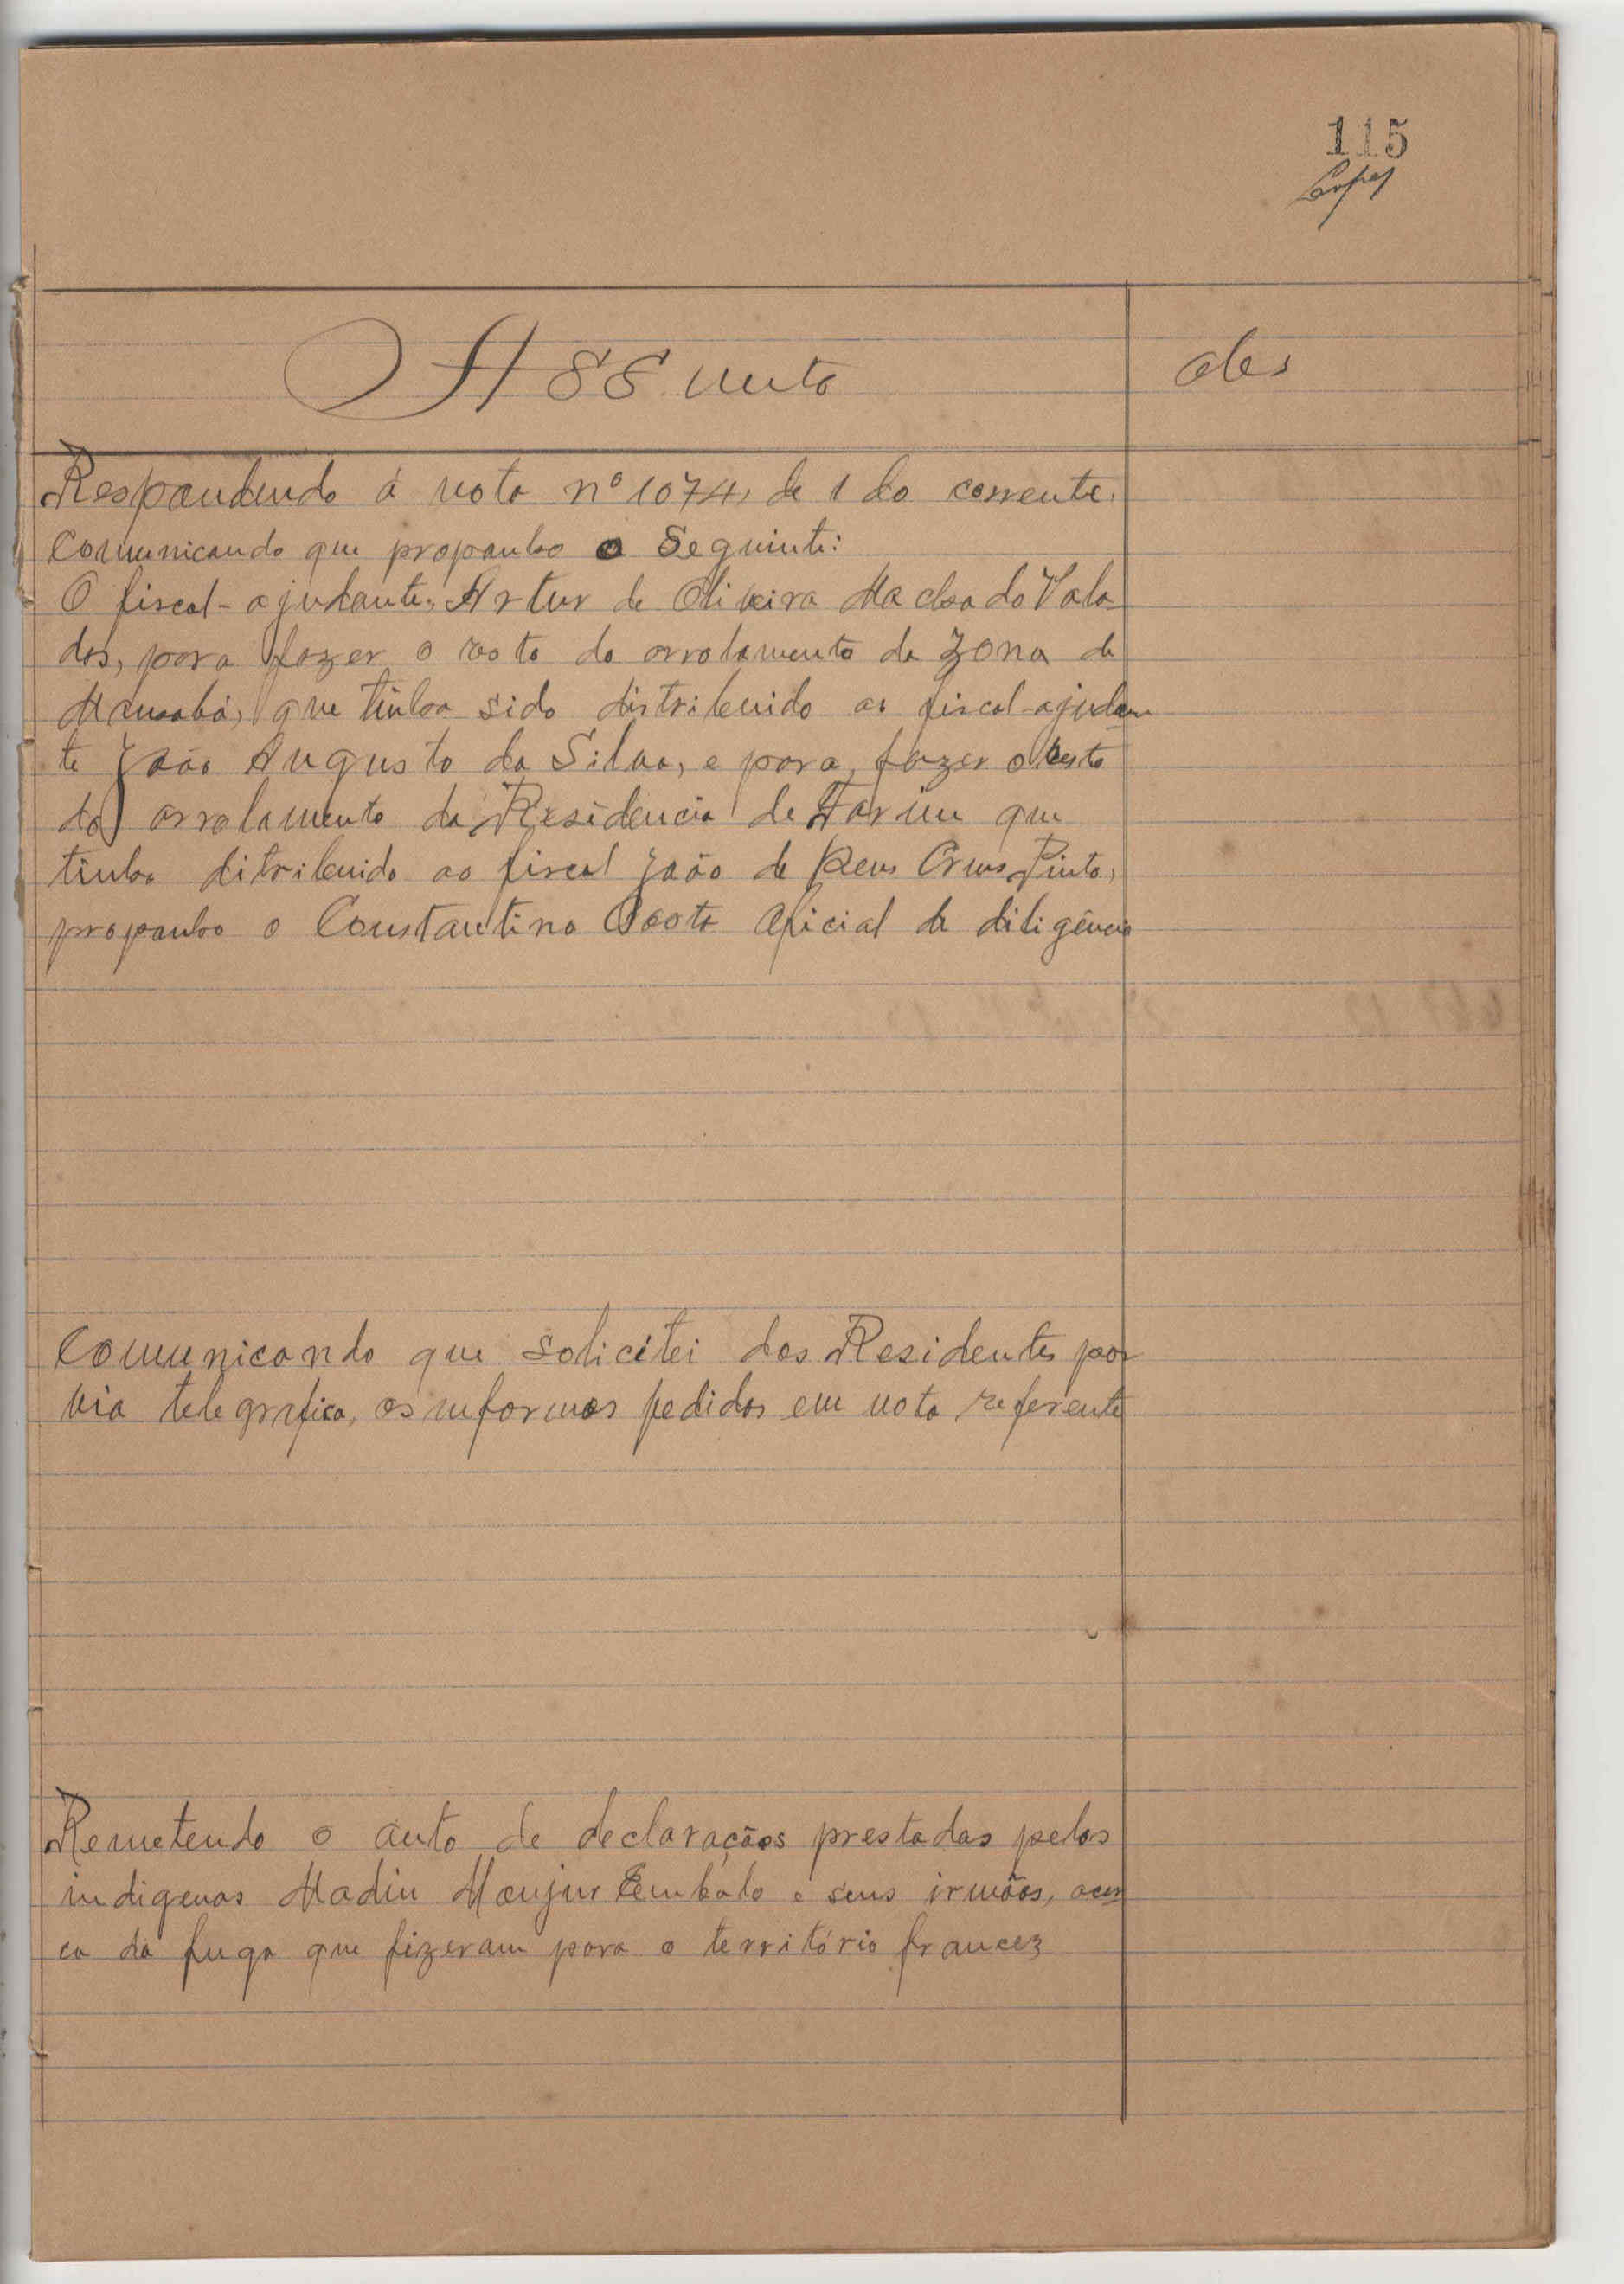 115
Lopes
Assunto
obs
Respondendo á nota nº 1074, de 1 do corrente.
Comunicando que proponho o Seguinte:
O fiscal-ajudante, Artur de Oliveira Machado Vala
das, para fazer o resto do arrolamento da zona de
Mansabá, que tinha sido distribuido ao fiscal-ajudan
te João Augusto da Silva, e para fazer o resto
do arrolamento da Residencia de Farim que
tinha ditribuido ao fiscal João de Deus Crus Pinto,
proponho o Constantino Costa Oficial de diligência
Comunicando que solicitei dos Residentes por
via telegrafica, os informes pedidos em nota referente
Remetendo o auto de declaraçãos prestadas pelos
indigenas Madiu Manjur Embalo e seus irmãos, acer
ca da fuga que fizeram para o território francez